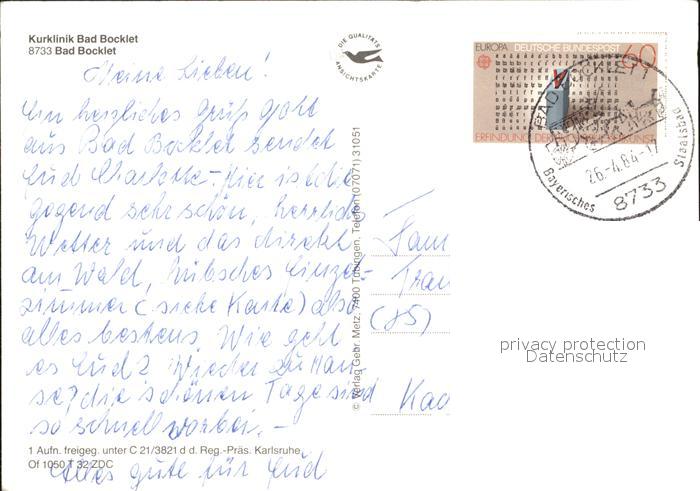 Kurklinik Bad Bocklet
8733 Bad Bocklet
DIE QUALITÄTS
ANSICHTSKARTE
Meine Lieben!
Ein herzliches Grüß Gott
aus Bad Bocklet sendet
Euch Charlotte - Hier ist die
gegend sehr schön, herrliches
Wetter und das direkt
am Wald, hübsches Einzel-
zimmer (siehe Karte) also
alles bestens. Wie geht
es Euch? Wieder zu Hau-
se? die schönen Tage sind
so schnell vorbei. -
Alles gute für Euch
1 Aufn. freigeg. unter C 21/3821 d d. Reg.-Präs. Karlsruhe
Of 1050 T 32 ZDC
© Verlag Gebr. Metz, 7400 Tübingen, Telefon (07071) 31051
EUROPA DEUTSCHE BUNDESPOST 60
ERFINDUNG DER BUCHDRUCKERKUNST
BAD BOCKLET 1
26.-4.84-17
8733
Bayerisches Staatsbad
Fam
(85)
privacy protection
Datenschutz